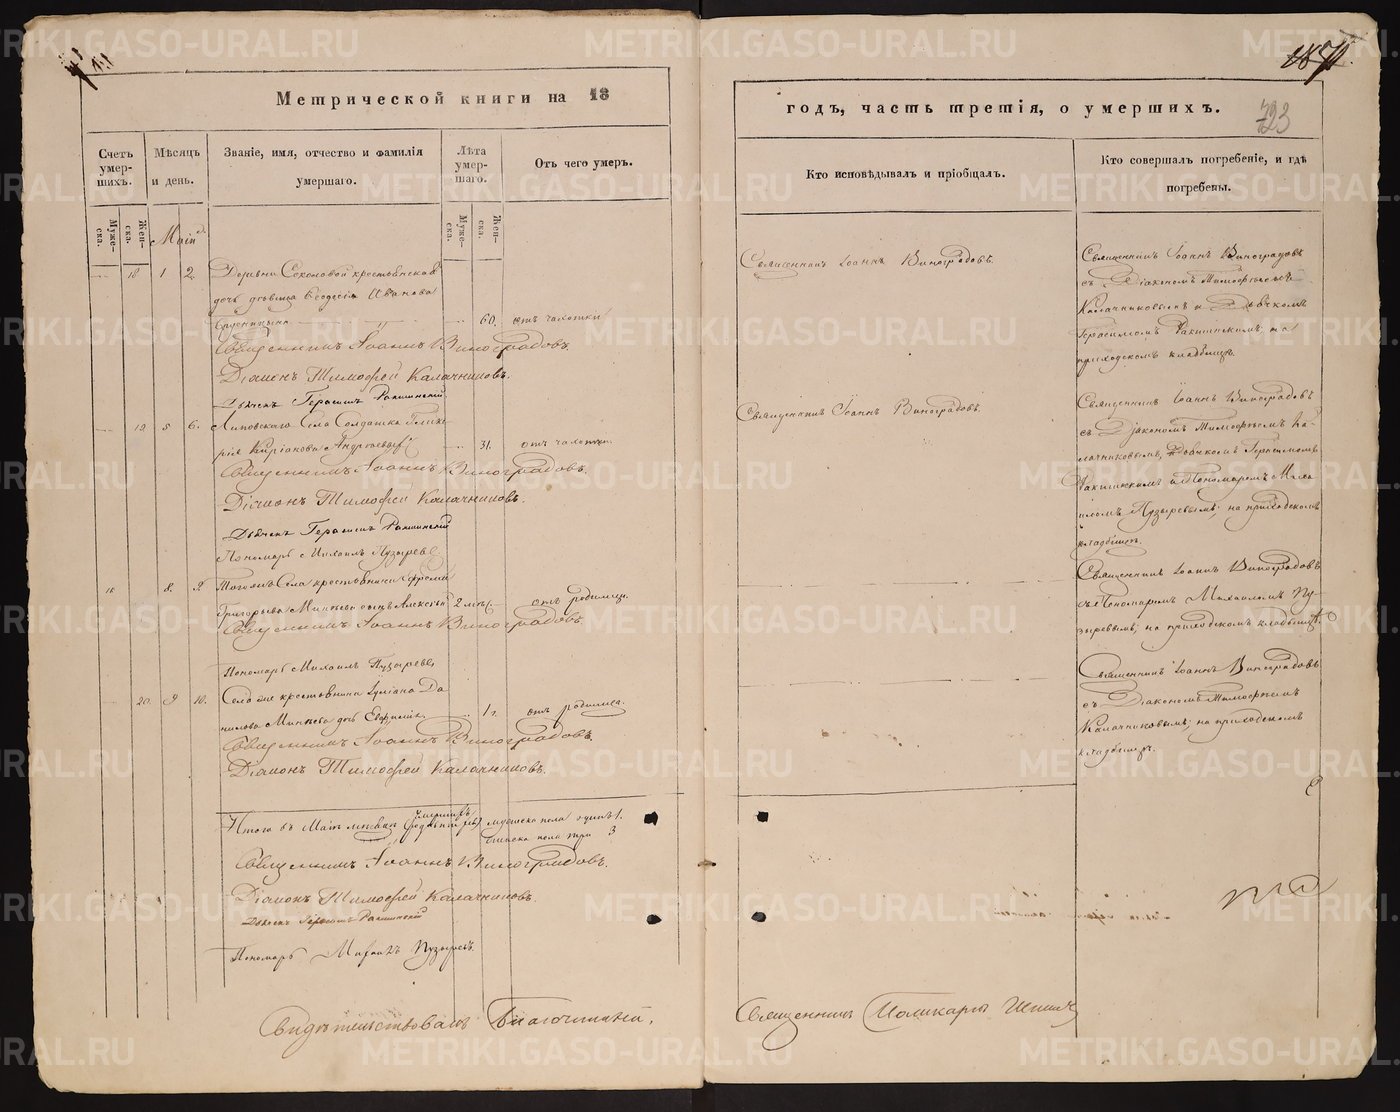 Метрической книги на 18
Счетъ умер-шихъ.
Мѣсяцъ и день.
Званіе, имя, отчество и фамилія умершаго.
Лѣта умер-шаго.
Отъ чего умеръ.
Муже-ска.
Жен-ска.
Муже-ска.
Жен-ска.
18 1 2.
Деревни Соколовой крестьянская
дочь дѣвица Ѳеодосія Иванова
60. отъ чахотки
Священникъ Іоаннъ Виноградовъ.
Діаконъ Тимоѳей Калачниковъ.
Дьячекъ Герасимъ Ракшинскій
19 5 6. Липовскаго Села Солдатка Глике-
рія Киріанова Андреева 31. отъ чахотки
Священникъ Іоаннъ Виноградовъ.
Діаконъ Тимоѳей Калачниковъ.
Дьячекъ Герасимъ Ракшинскій
Пономарь Михаилъ Пузыревъ
8. 9. Села крестьянина
Григорьева сынъ Алексѣй 2 мѣс. отъ родимца.
Священникъ Іоаннъ Виноградовъ
Пономарь Михаилъ Пузыревъ
20. 9 10. Села крестьянина Іуліана Да-
нилова дочь 1 г. отъ родимца.
Священникъ Іоаннъ Виноградовъ.
Діаконъ Тимоѳей Калачниковъ.
Итого въ Маѣ мѣсяцѣ умершихъ мужеска пола одинъ 1.
женска пола три 3
Священникъ Іоаннъ Виноградовъ.
Діаконъ Тимоѳей Калачниковъ.
Дьячекъ Герасимъ Ракшинскій
Пономарь Михаилъ Пузыревъ.
Свидѣтельствовалъ Благочинный,
годъ, часть третія, о умершихъ.
723
Кто исповѣдывалъ и пріобщалъ.
Кто совершалъ погребеніе, и гдѣ погребены.
Священникъ Іоаннъ Виноградовъ.
Священникъ Іоаннъ Виноградовъ
съ Діакономъ Тимоѳеемъ
Калачниковымъ и Дьячкомъ
Герасимомъ Ракшинскимъ на
приходскомъ кладбищѣ.
Священникъ Іоаннъ Виноградовъ.
Священникъ Іоаннъ Виноградовъ
съ Діакономъ Тимоѳеемъ Ка-
лачниковымъ, Дьячкомъ Герасимомъ
Ракшинскимъ и Пономаремъ Миха-
иломъ Пузыревымъ; на приходскомъ
кладбищѣ.
Священникъ Іоаннъ Виноградовъ
съ Пономаремъ Михаиломъ Пу-
зыревымъ; на приходскомъ кладбищѣ.
Священникъ Іоаннъ Виноградовъ
съ Діакономъ Тимоѳеемъ
Калачниковымъ; на приходскомъ
кладбищѣ.
Священникъ Поликарпъ
METRIKI.GASO-URAL.RU